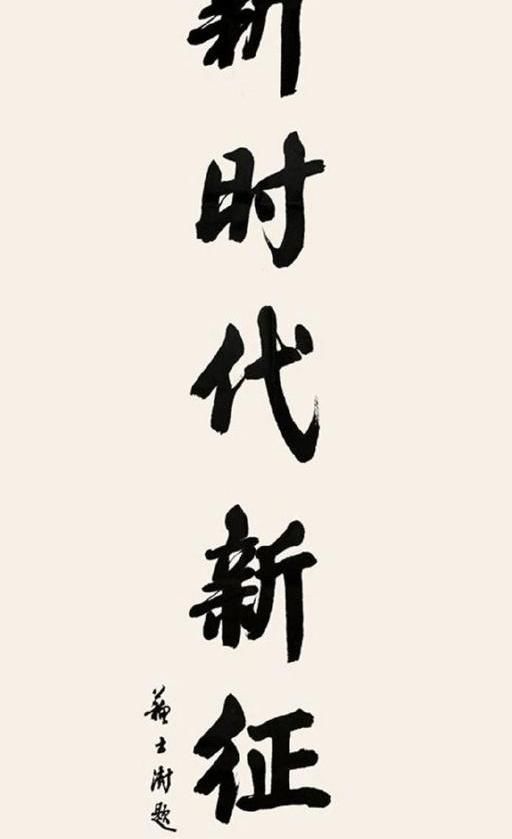 新时代新征
苏士澍题